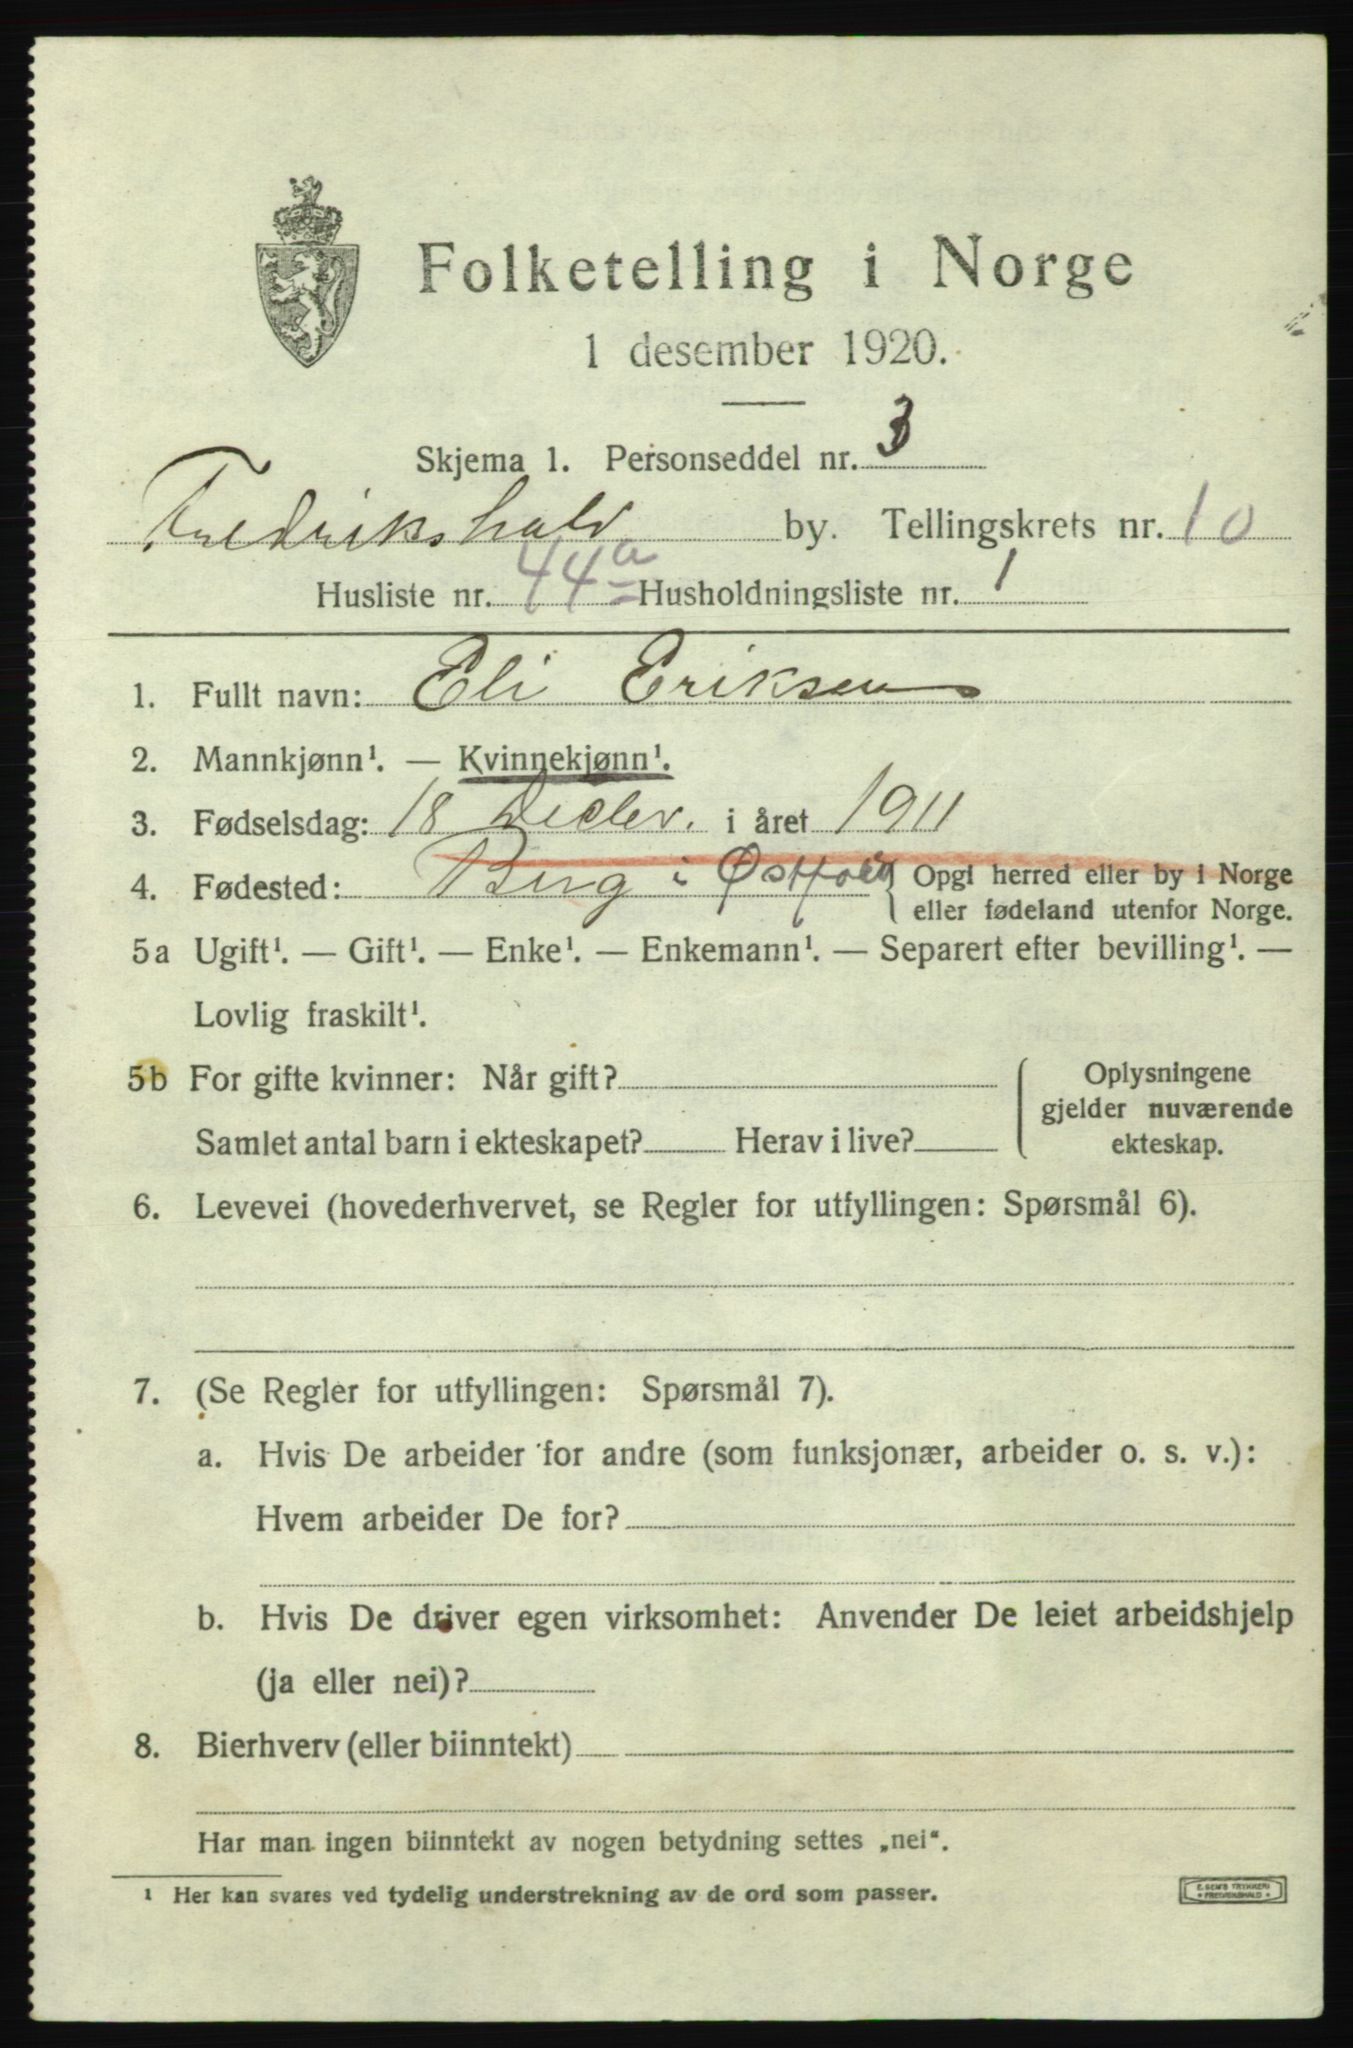 Folketelling i Norge
1 desember 1920.
Skjema 1. Personseddel nr. 3
Fredrikshald by. Tellingskrets nr. 10
Husliste nr. 44a Husholdningsliste nr. 1
1. Fullt navn: Eli Eriksen
2. Mannkjønn¹. — Kvinnekjønn¹.
3. Fødselsdag: 18 Decbr. i året 1911
4. Fødested: Berg i Østfold { Opgi herred eller by i Norge
eller fødeland utenfor Norge.
5a Ugift¹. — Gift¹. — Enke¹. — Enkemann¹. — Separert efter bevilling¹. —
Lovlig fraskilt¹.
5b For gifte kvinner: Når gift? { Oplysningene
gjelder nuværende
Samlet antal barn i ekteskapet? Herav i live? ekteskap.
6. Levevei (hovederhvervet, se Regler for utfyllingen: Spørsmål 6).
7. (Se Regler for utfyllingen: Spørsmål 7).
a. Hvis De arbeider for andre (som funksjonær, arbeider o. s. v.):
Hvem arbeider De for?
b. Hvis De driver egen virksomhet: Anvender De leiet arbeidshjelp
(ja eller nei)?
8. Bierhverv (eller biinntekt)
Har man ingen biinntekt av nogen betydning settes „nei“.
¹ Her kan svares ved tydelig understrekning av de ord som passer.
E. SEM'S TRYKKERI
• FREDRIKSHALD •